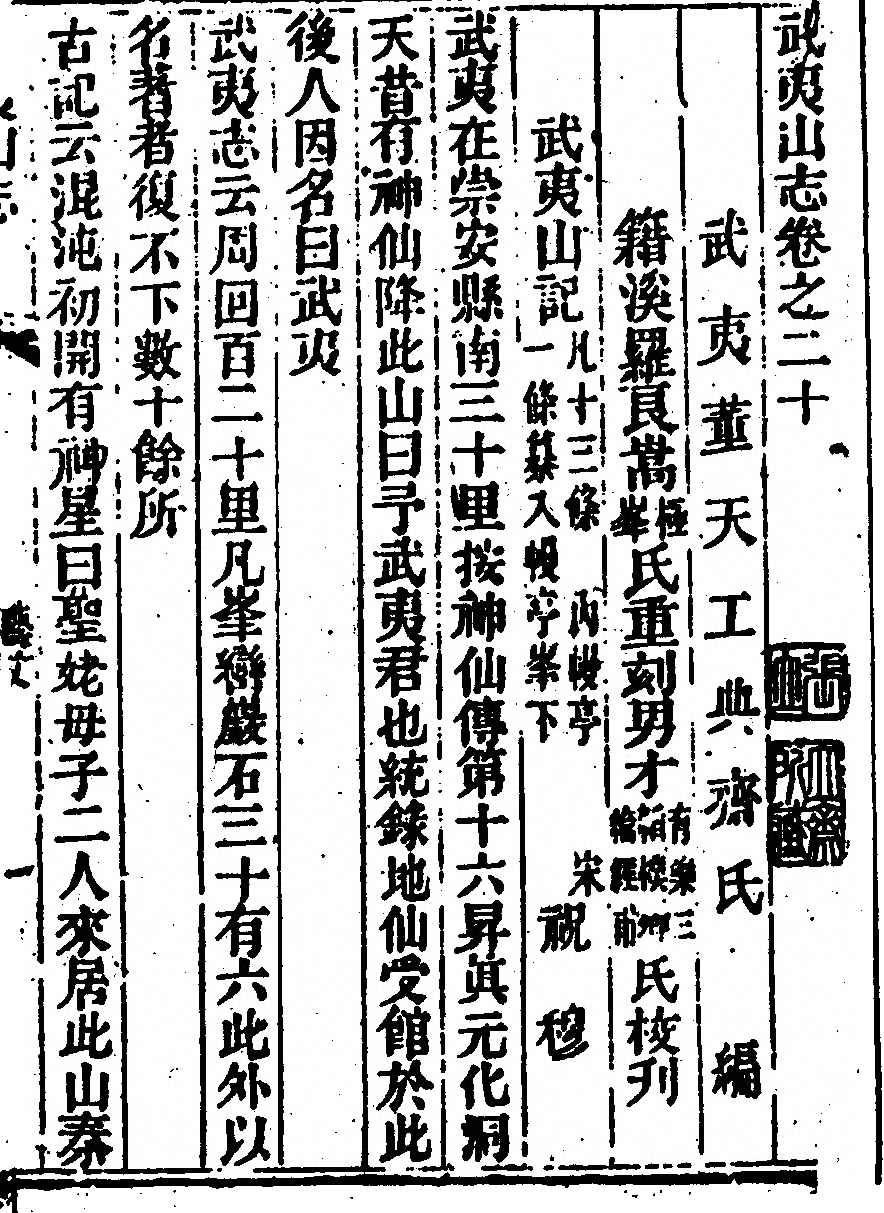 武夷山志卷之二十
武夷董天工典齋氏編
籍溪羅良嵩極峯氏重刻男才有樂三氏校刊
武夷山記凡十三條 內幔亭一條纂入幔亭峯下 宋祝穆
武夷在崇安縣南三十里按神仙傳第十六昇眞元化洞
天昔有神仙降此山曰予武夷君也統錄地仙受館於此
後人因名曰武夷
武夷志云周回百二十里凡峯巒巖石三十有六此外以
名著者復不下數十餘所
古記云混沌初開有神星曰聖姥母子二人來居此山秦
山志
藝文
一